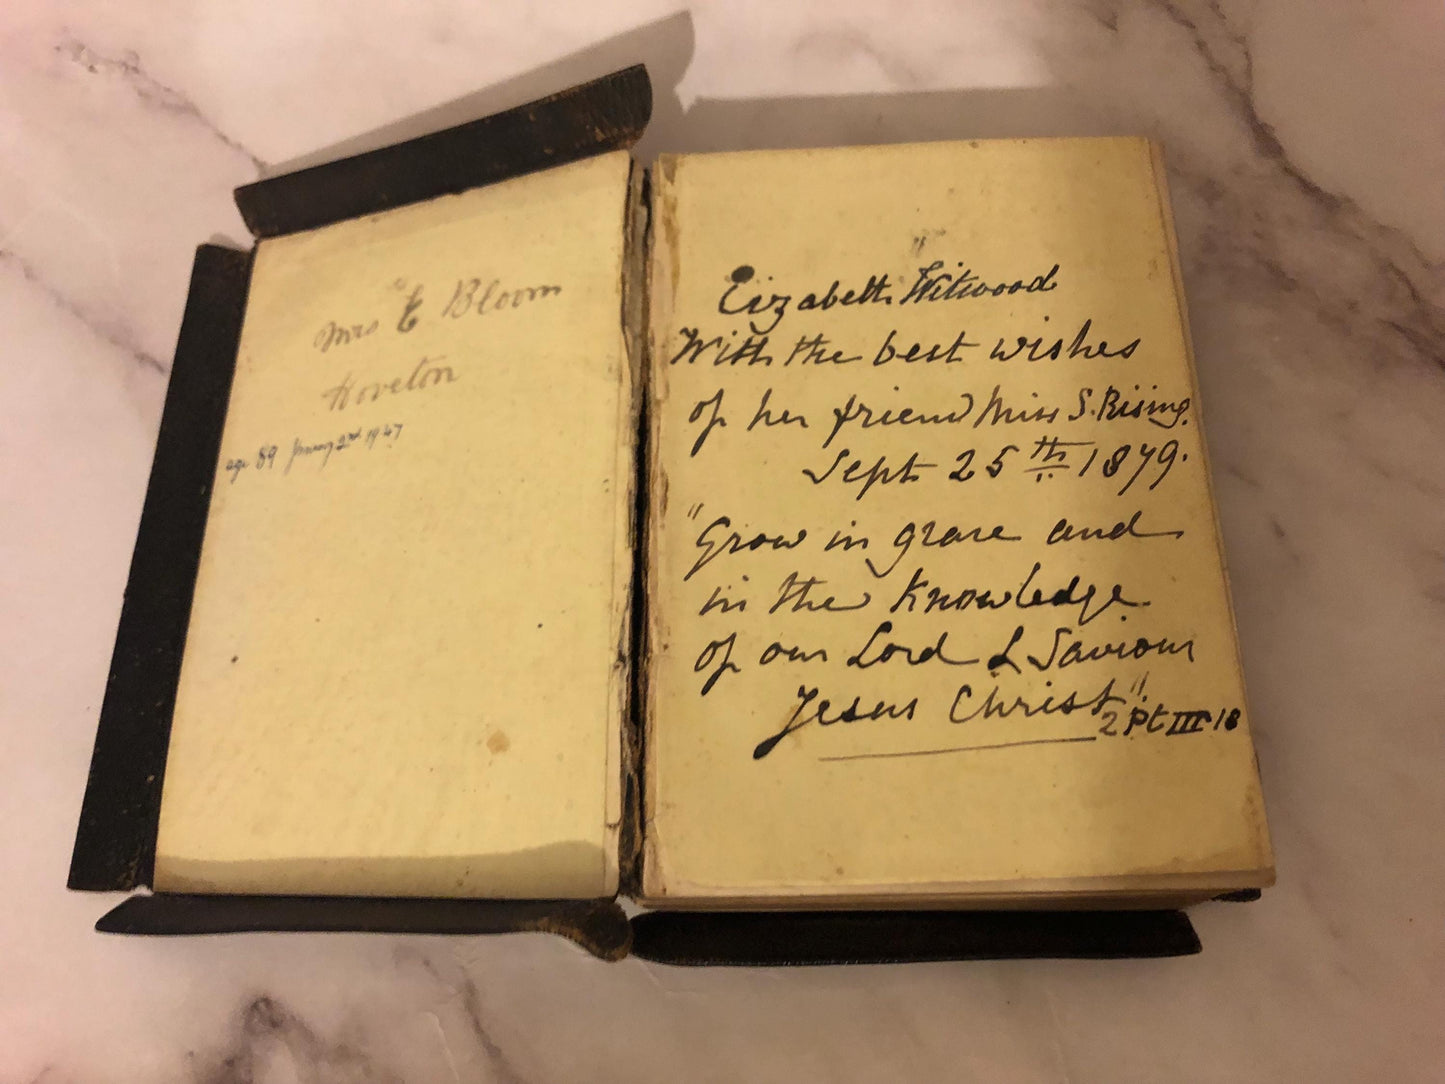 Mrs E Bloom
Hoveton
age 89 January 2nd 1947
Elizabeth Witwood
With the best wishes
of her friend Miss S. Rising.
Sept 25th 1879.
"Grow in grace and
in the Knowledge
of our Lord & Saviour
Jesus Christ".
2 Pt III 18